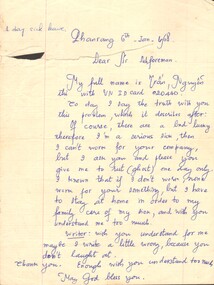 1 day sick leave
Phanrang 6th. Jan. 68
Dear Sir
My full name is Trần, Nguyễn
the with VN ID card
To day I say the truth with you
this problem which it describes after:
If course, there are a bad luxury
therefore I'm a serious sick then
I can't work for your company,
but I ask you and please you
give me to but (phút) one day only.
I known that if I don't work
work for your something, but I have
to stay at home in order to my
family care of my ken, and wish you
understand me too much
Writer: wish you understand for me
maybe I wrote a little wrong, because you
don't laught at.
Thank you. trough wish you understand too much
May God bless you.